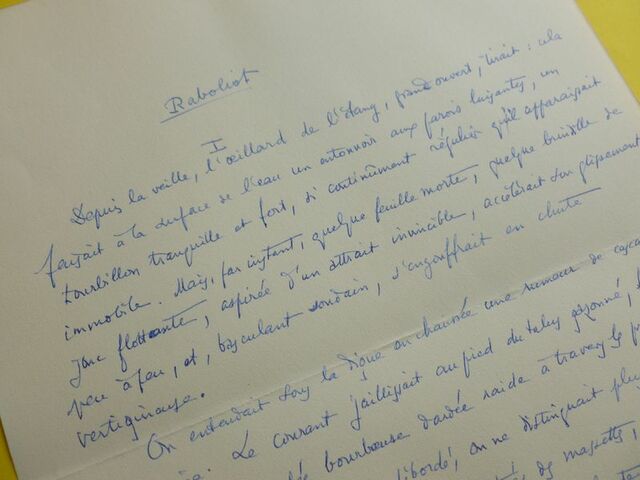 Raboliot
I
Depuis la veille, l'œillard de l'étang, grand ouvert, tirait : cela
faisait à la surface de l'eau un entonnoir aux parois luisantes, un
tourbillon tranquille et fort, si continûment régulier qu'il apparaissait
immobile. Mais, par instant, quelque feuille morte, quelque brindille de
jonc flottante, aspirée d'un attrait invincible, accélérait son glissement
peu à peu, et, basculant soudain, s'engouffrait en chute
vertigineuse.
On entendait sous la digue en chaussée une rumeur de casca
Le courant jaillissait au pied du talus gazonné,
bourbeuse dardée raide à travers le
débordé, on ne distinguait plus